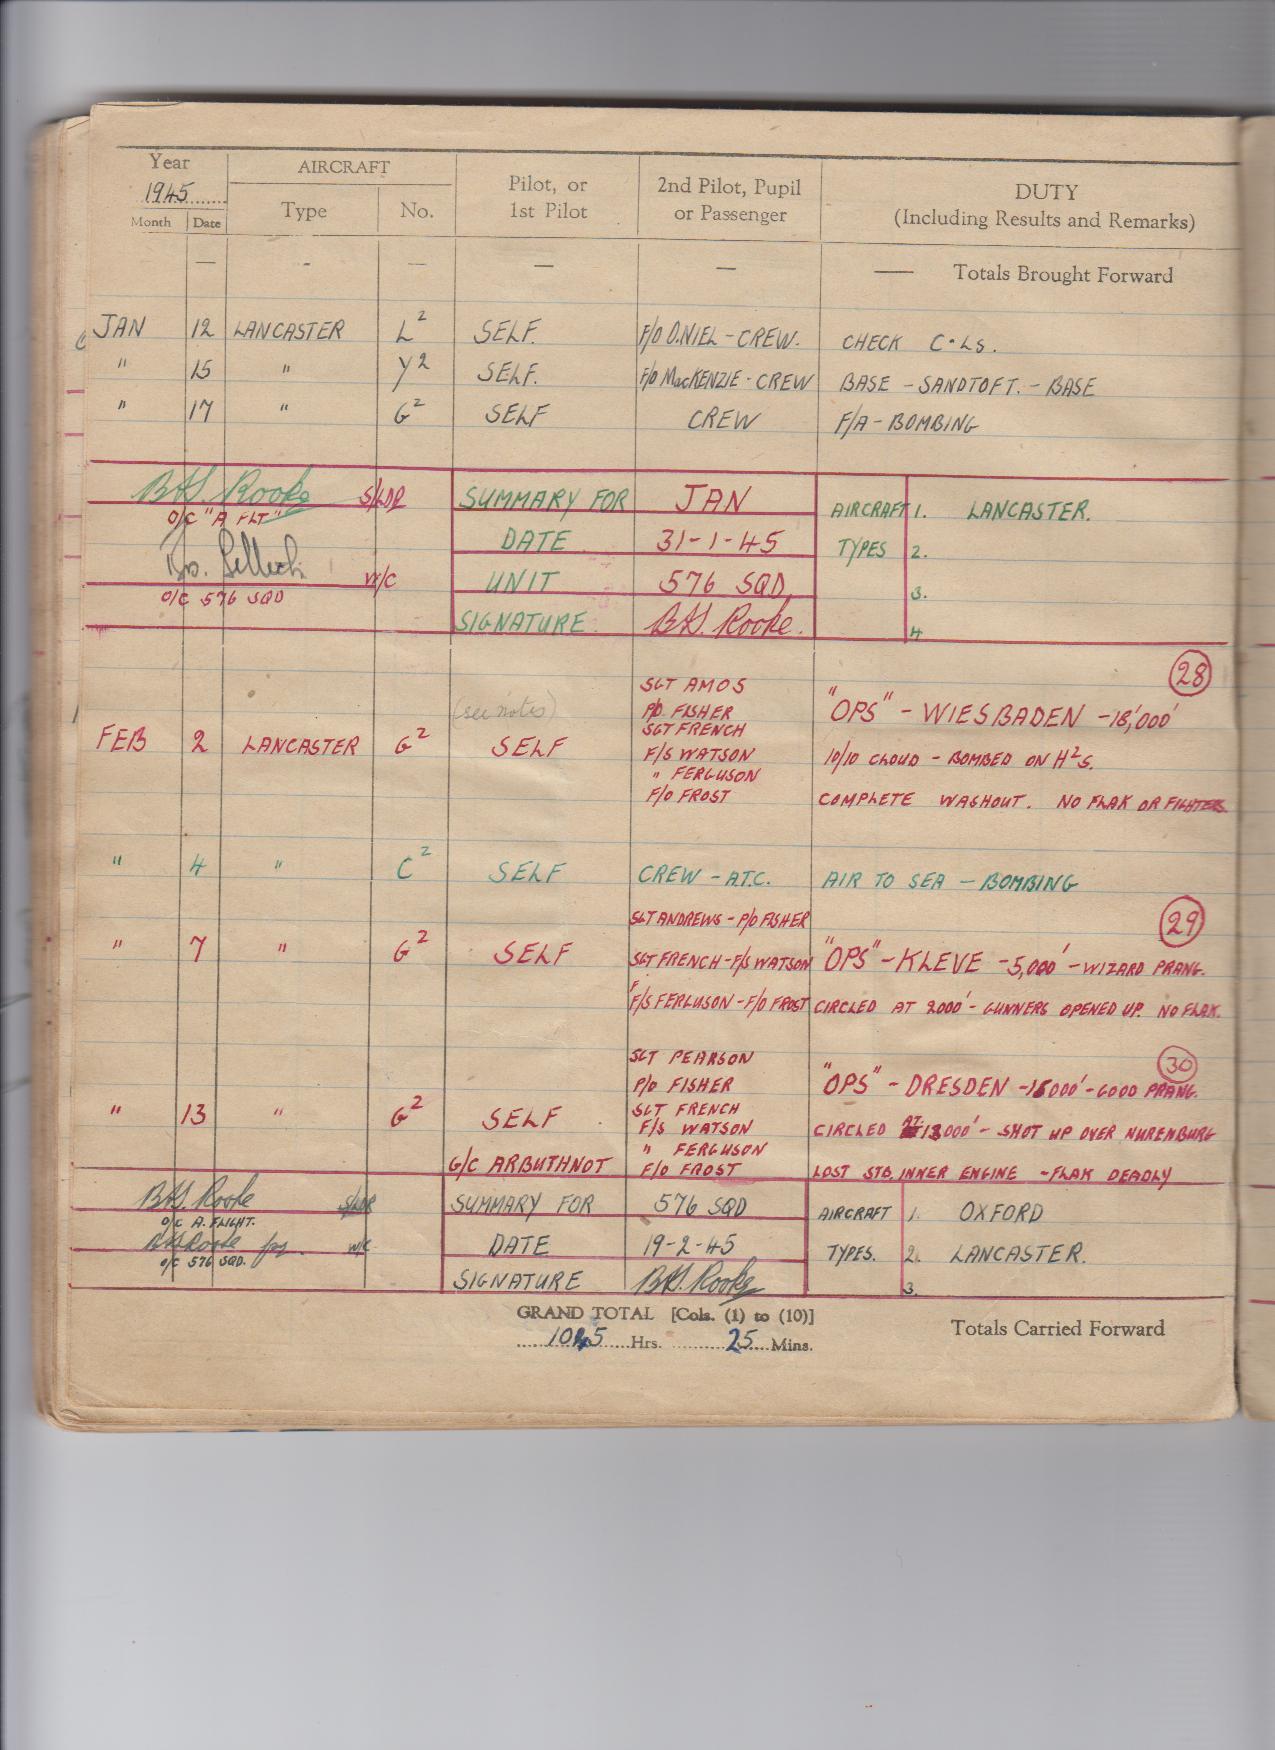 Year AIRCRAFT Pilot, or 1st Pilot 2nd Pilot, Pupil or Passenger DUTY (Including Results and Remarks)
1945
Month Date Type No.
— - — — — — Totals Brought Forward
JAN 12 LANCASTER L² SELF. F/O D.NIEL - CREW. CHECK C·LS.
" 15 " Y² SELF. F/O MacKENZIE - CREW BASE - SANDTOFT. - BASE
" 17 " G² SELF CREW F/A - BOMBING
B.G. Rooke S/LDR SUMMARY FOR JAN AIRCRAFT 1. LANCASTER.
O/C "A FLT" DATE 31-1-45 TYPES 2.
W/C UNIT 576 SQD. 3.
O/C 576 SQD
SIGNATURE Rooke. 4
28
SGT AMOS
(see notes) P/O FISHER "OPS" - WIESBADEN - 18,000'
SGT FRENCH
FEB 2 LANCASTER G² SELF F/S WATSON 10/10 CLOUD - BOMBED ON H²S.
" FERGUSON
F/O FROST COMPLETE WASHOUT. NO FLAK OR FIGHTERS.
" 4 " C² SELF CREW - A.T.C. AIR TO SEA - BOMBING
SGT ANDREWS - P/O FISHER 29
" 7 " G² SELF SGT FRENCH - F/S WATSON "OPS" - KLEVE - 5,000' - WIZARD PRANG.
F/S FERGUSON - F/O FROST CIRCLED AT 2000' - GUNNERS OPENED UP. NO FLAK.
SGT PEARSON 30
P/O FISHER "OPS" - DRESDEN - 000' - GOOD PRANG.
SGT FRENCH
" 13 " G² SELF F/S WATSON CIRCLED AT 000' - SHOT UP OVER NURENBURG
" FERGUSON
G/C ARBUTHNOT F/O FROST LOST STB. INNER ENGINE - FLAK DEADLY
Rooke S/LDR SUMMARY FOR 576 SQD AIRCRAFT 1. OXFORD
O/C A. FLIGHT.
Rooke for. W/C DATE 19-2-45 TYPES. 2. LANCASTER.
O/C 576 SQD.
SIGNATURE Rooke 3.
GRAND TOTAL [Cols. (1) to (10)] Totals Carried Forward
1045 Hrs. 25 Mins.